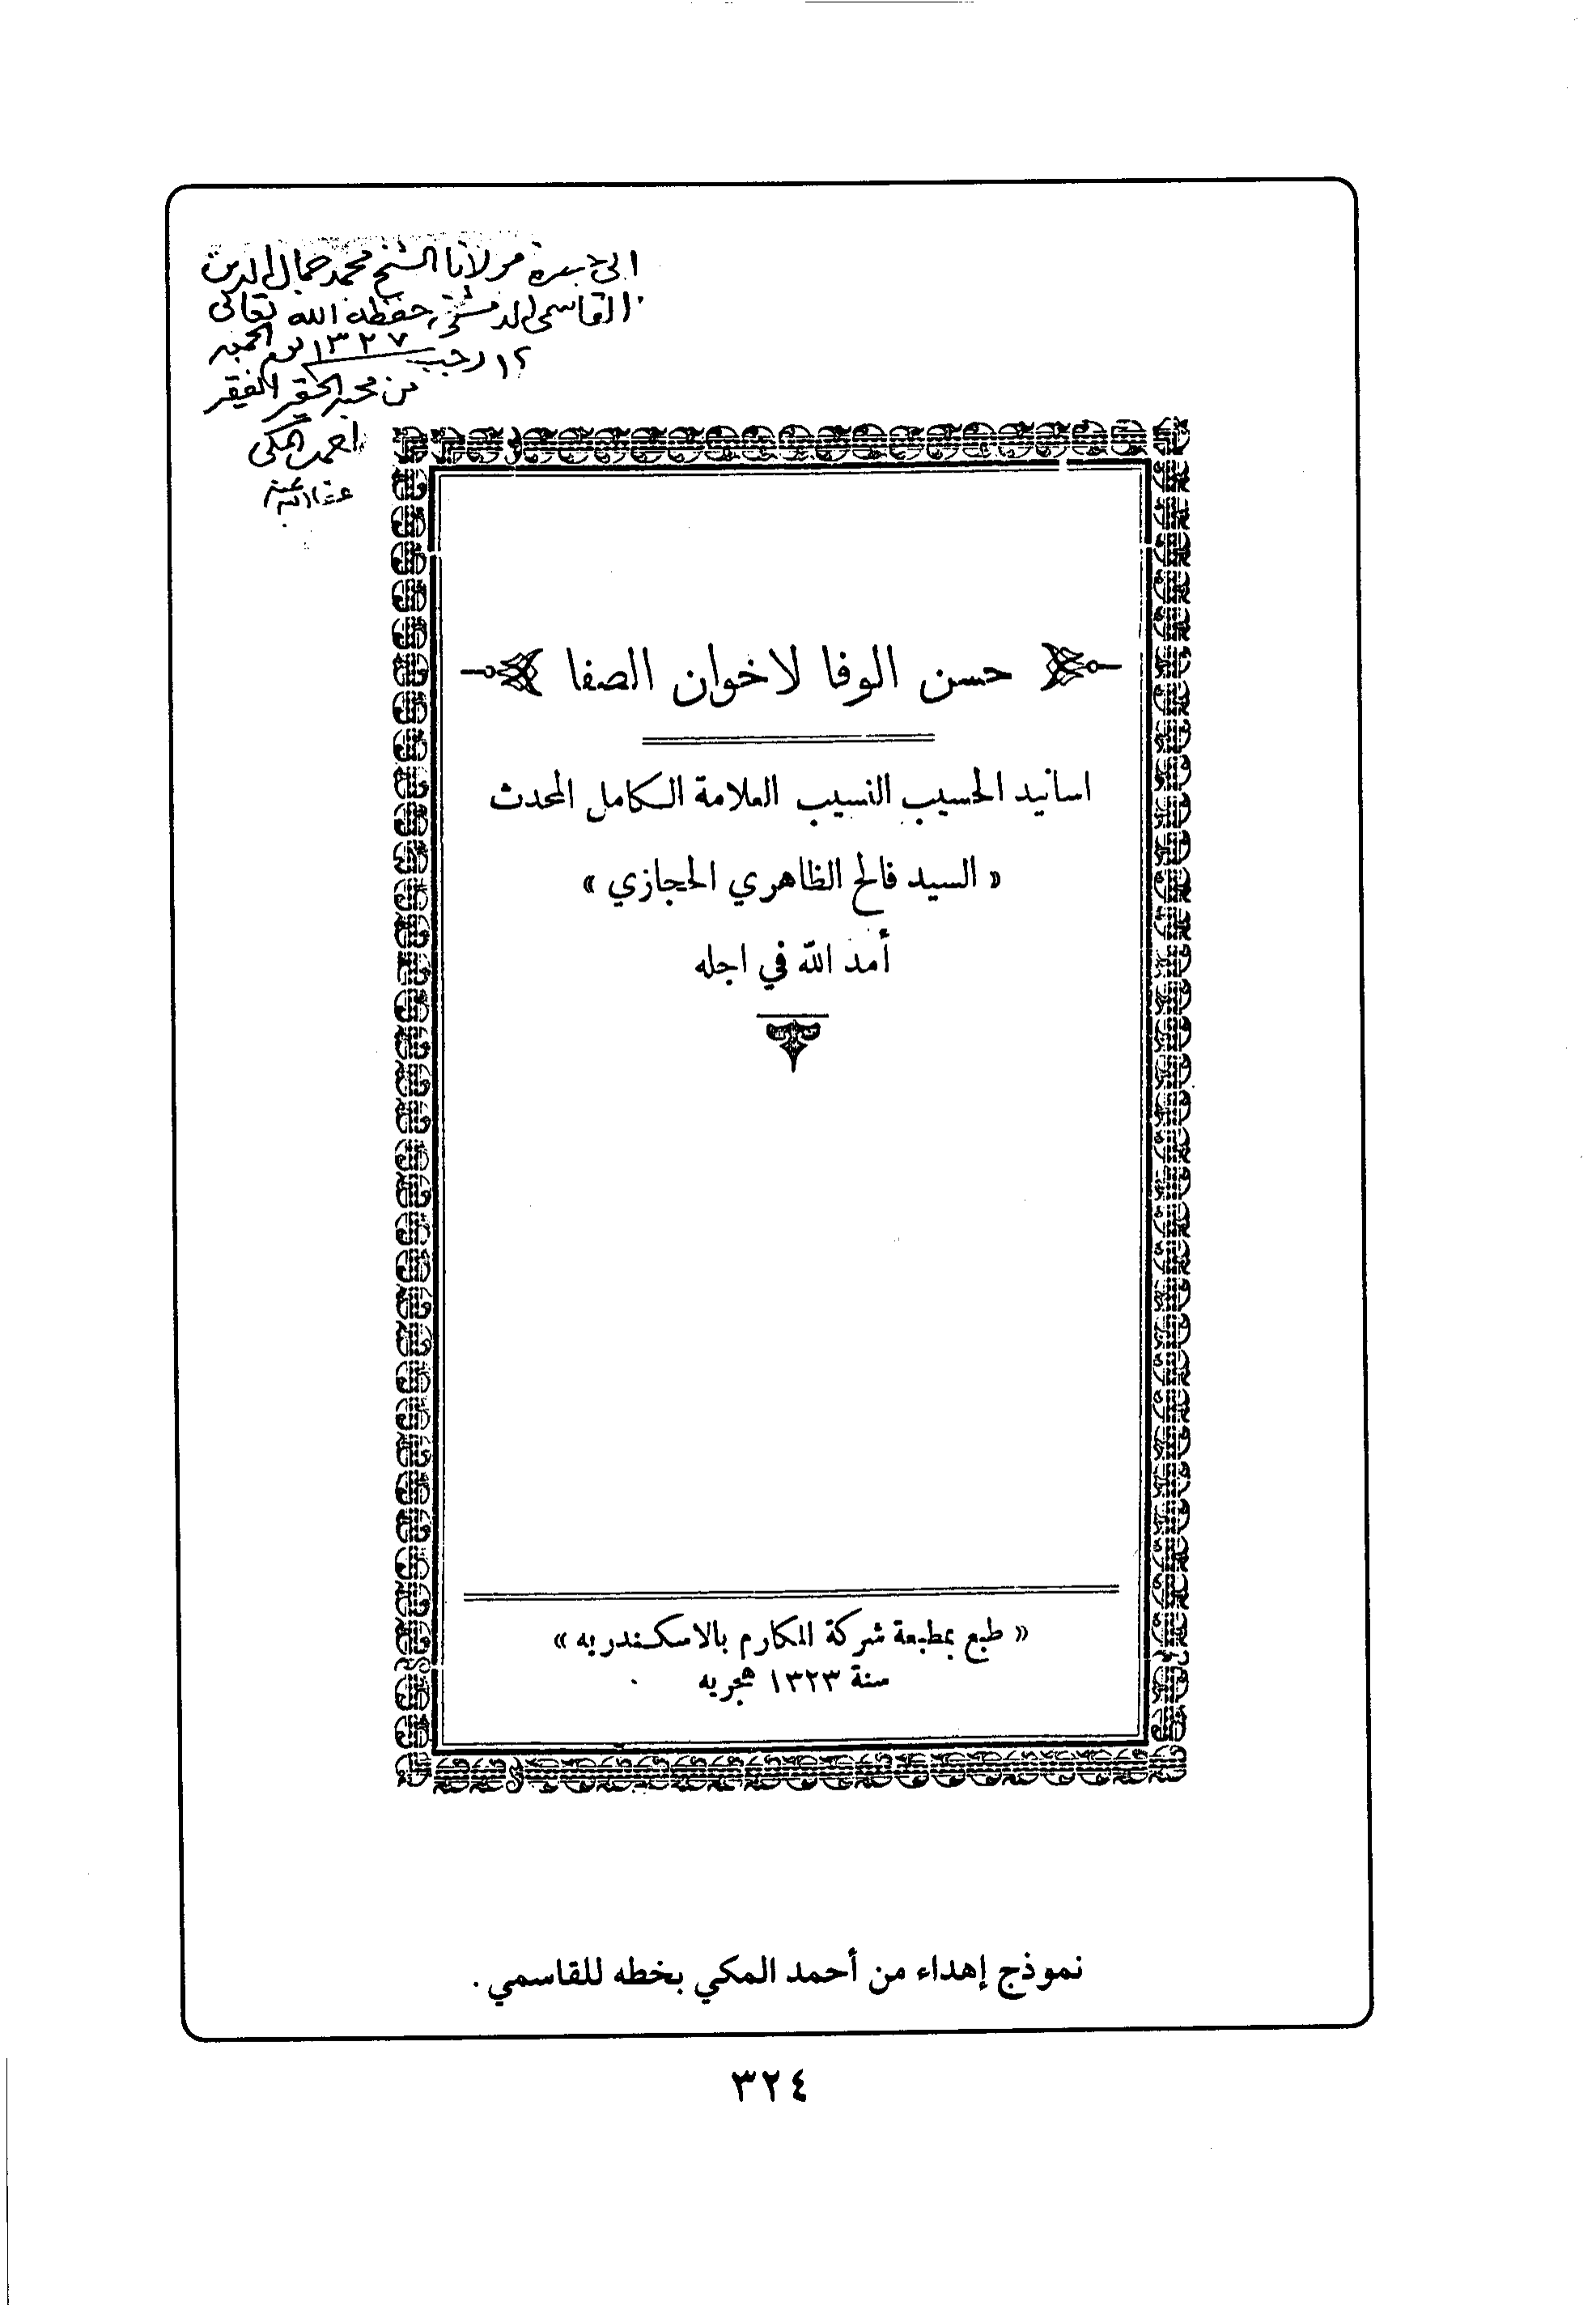 الى حبيبه مولانا الشيخ محمد جمال الدين
القاسمي الدمشقي حفظه الله تعالى
١٢ رجب ١٣٢٧ يوم الجمعه
من محبه الحقير الفقير
احمد المكي
عفا الله عنه
حسن الوفا لاخوان الصفا
اسانيد الحسيب النسيب العلامة الكامل المحدث
« السيد فالح الظاهري الحجازي »
أمد الله في اجله
« طبع بمطبعة شركة المكارم بالاسكندريه »
سنة ١٣٢٣ هجريه
نموذج إهداء من أحمد المكي بخطه للقاسمي .
٣٢٤